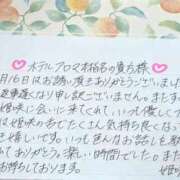 ホテルアロマ本指名の貴方様
月16日はお誘い頂きありがとうございました
返事遅くなり申し訳ございません。またす
姫咲に会いに来てくれて、いっぱい優しく
は姫咲のおててたくさん気持ち良くな
嬉しいです。いっぱい色んなお話しも楽
ありがとう。楽しい時間でした。また
お待ちしております。
姫咲